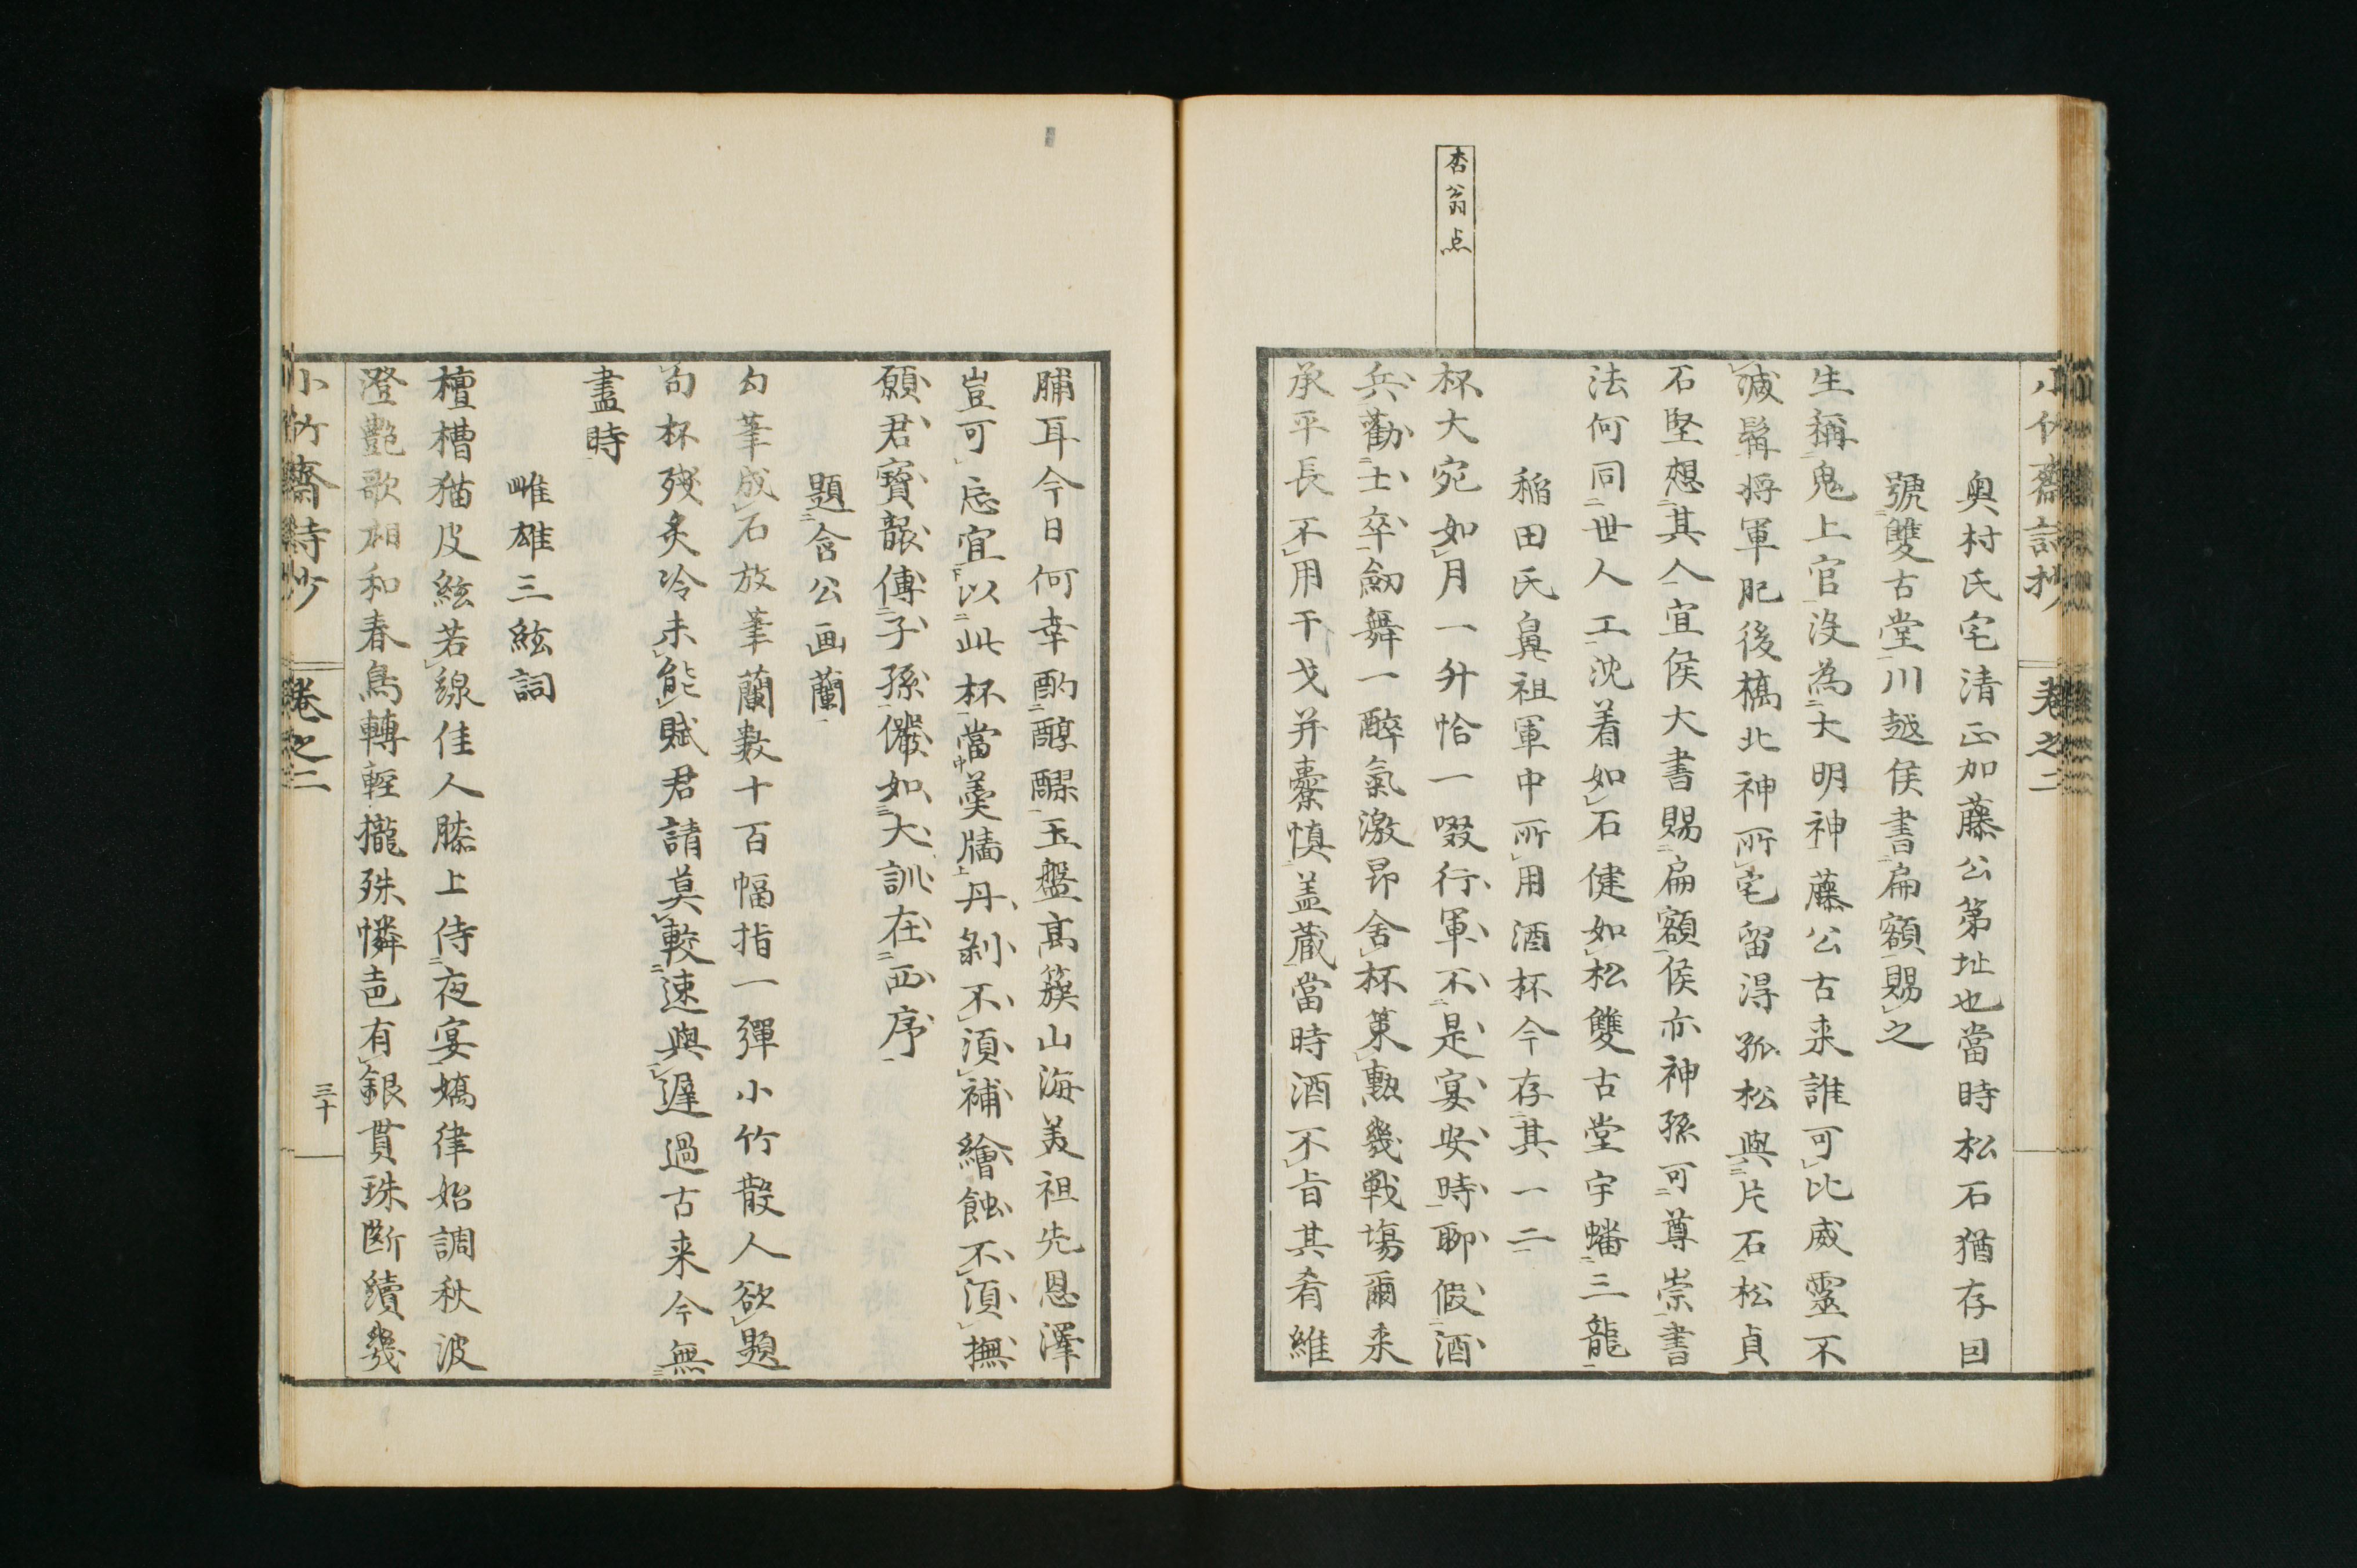 小竹齋詩抄 卷之二
奥村氏宅清正加藤公第址也當時松石猶存因
號雙古堂川越侯書扁額賜之
生稱鬼上官没為大明神藤公古来誰可比威靈不
滅髯将軍肥後橋北神所宅留得孤松與片石松貞
石堅想其人宜侯大書賜扁額侯亦神孫可尊崇書
法何同世人工沈着如石健如松雙古堂宇蟠三龍
稲田氏鼻祖軍中所用酒杯今存其一二
杏翁点
杯大宛如月一升恰一啜行軍不是宴安時聊假酒
兵勸士卒劒舞一醉氣激昂舍杯策勲幾戰塲爾来
承平長不用干戈并櫜慎盖蔵當時酒不旨其肴維
脯耳今日何幸酌醇醲玉盤高簇山海美祖先恩澤
豈可忘宜以此杯當羹牆丹剝不須補繪蝕不須撫
願君寳襲傳子孫儼如大訓在西序
題含公画蘭
勾筆成石放筆蘭数十百幅指一彈小竹散人欲題
句杯殘炙冷未能賦君請莫較速與遲過古来今無
盡時
雌雄三絃詞
檀槽猫皮絃若線佳人膝上侍夜宴嬌律始調秋波
澄艶歌相和春鳥轉輕攏殊憐声有銀貫珠断續幾
小竹齋詩抄 卷之二 三十